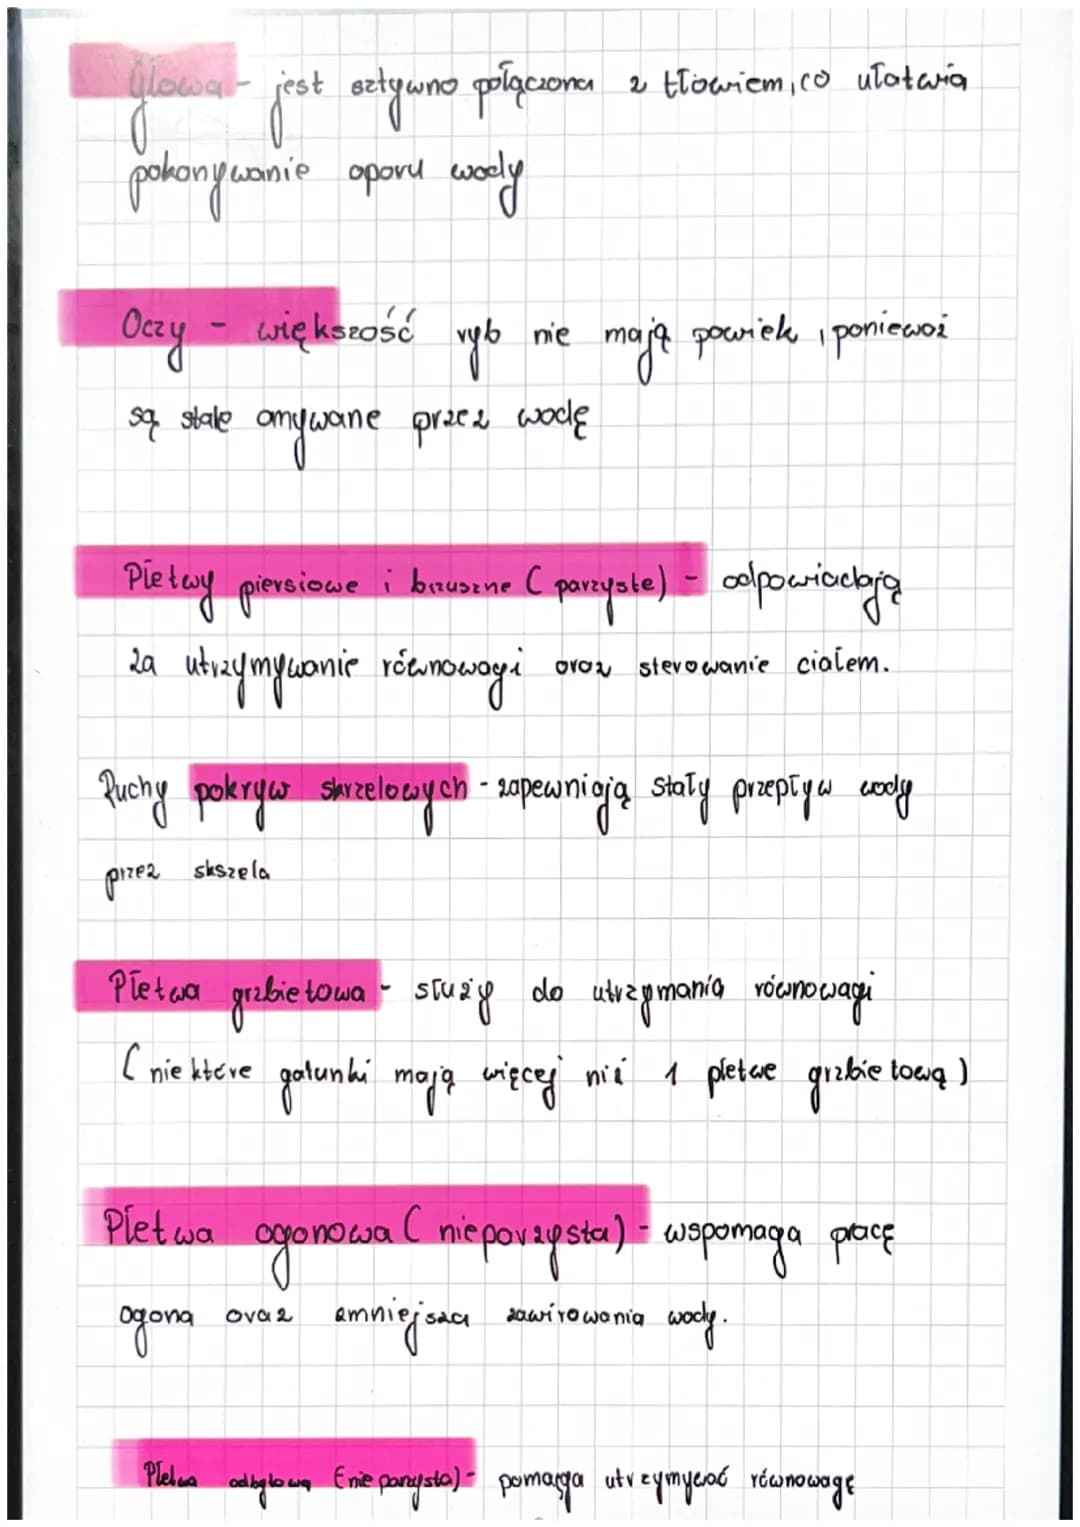 Głowa - jest sztywno połączona z tłowiem, co ułatwia
pokonywanie oporu wody
Oczy - większość ryb nie mają powiek, ponieważ
są stale omywane przez wodę
Płetwy piersiowe i brzuszne (parzyste) - odpowiadają
za utrzymywanie równowagi oraz sterowanie ciałem.
Ruchy pokryw skrzelowych - zapewniają stały przepływ wody
przez skszela
Płetwa grzbietowa - służy do utrzymania równowagi
(niektóre gatunki mają więcej niż 1 płetwe grzbietową)
Płetwa ogonowa (nieparzysta) - wspomaga pracę
ogona oraz zmniejsza zawirowania wody.
Płetwa odbytowa (nieparzysta) - pomaga utrzymywać równowagę